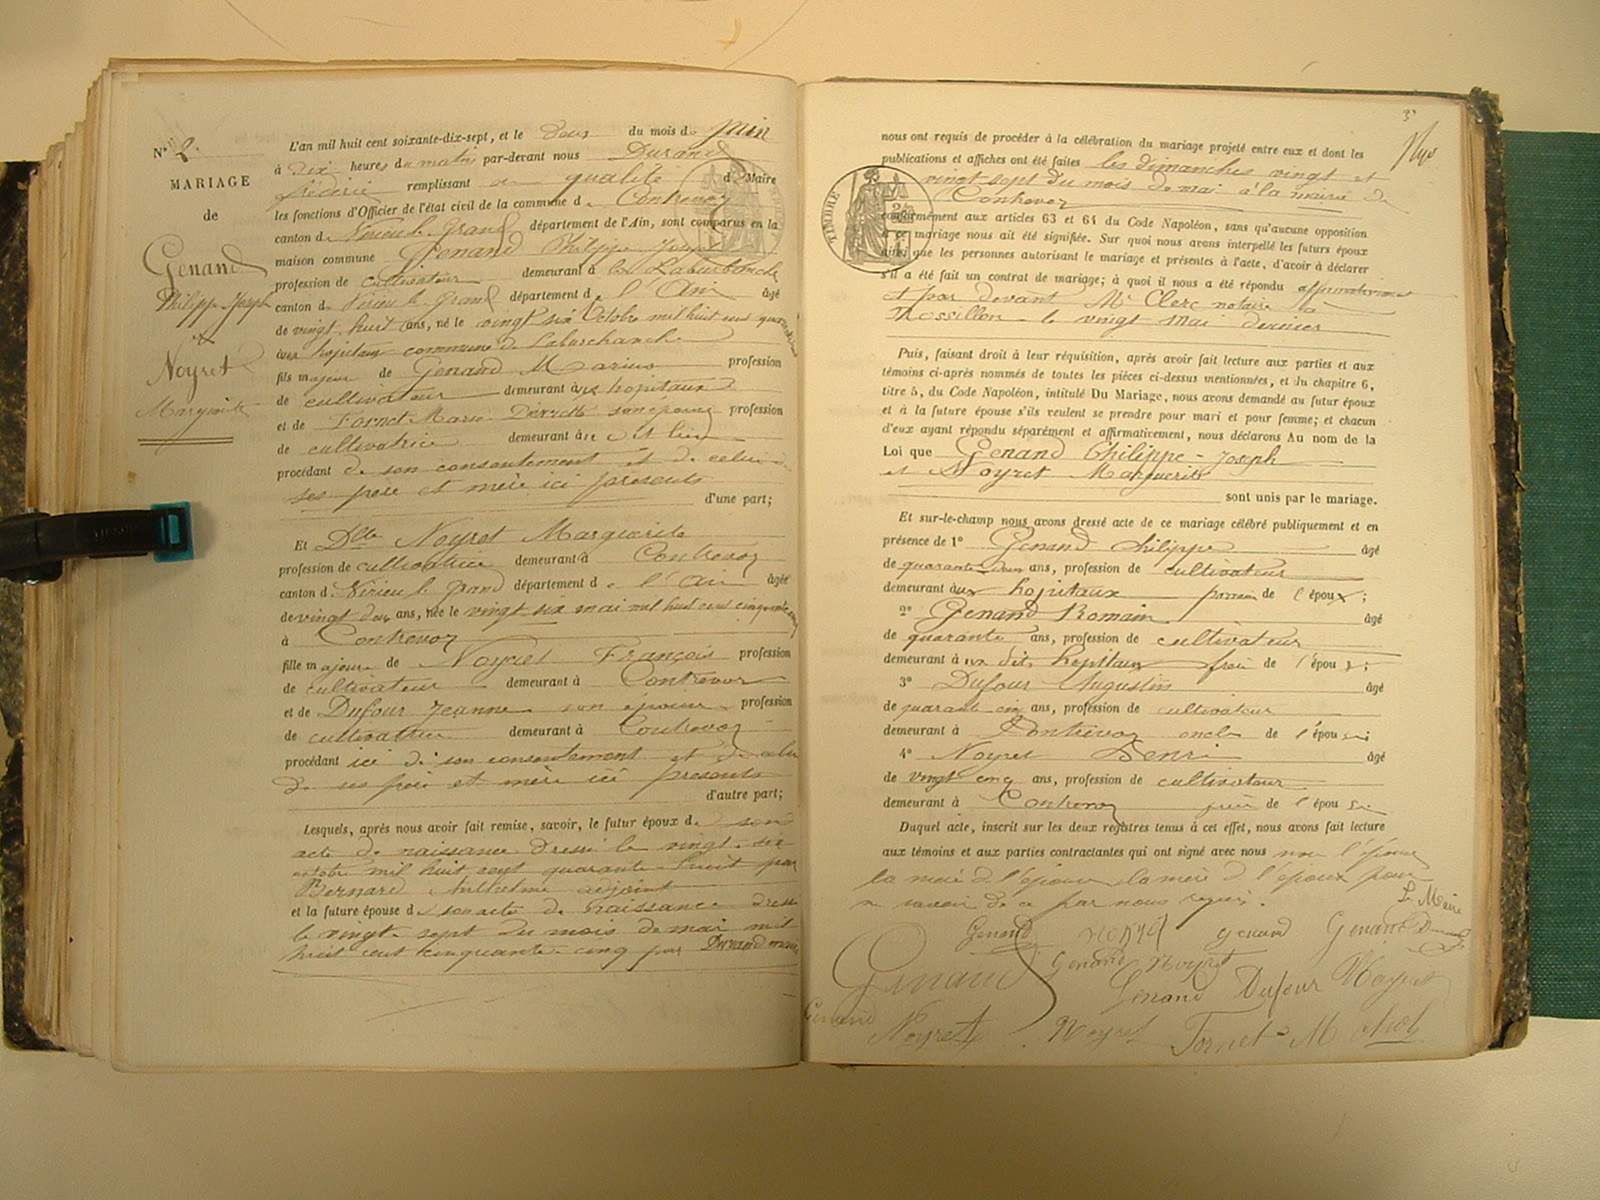 N° 2.
MARIAGE
de
Genand
Philippe Joseph
et
Noyret
Marguerite
L'an mil huit cent soixante-dix-sept, et le deux du mois de Juin
à dix heures du matin par-devant nous Durand
remplissant en qualité de Maire
les fonctions d'Officier de l'état civil de la commune de Contrevoz
canton de Virieu le Grand département de l'Ain, sont comparus en la
maison commune Genand Philippe Joseph
profession de cultivateur demeurant à
canton de Virieu le Grand département de l'Ain âgé
de vingt huit ans, né le vingt six Octobre mil huit cent
aux hopitaux commune de
fils majeur de Genand Marius profession
de cultivateur demeurant aux hopitaux
et de Fornet Marie son épouse profession
de cultivatrice demeurant au dit lieu
procédant de son consentement et de celui de
ses père et mère ici présents
d'une part;
Et Dlle Noyret Marguerite
profession de cultivatrice demeurant à Contrevoz
canton de Virieu le Grand département de l'Ain âgée
de vingt deux ans, née le vingt six mai mil huit cent cinquante cinq
à Contrevoz
fille majeure de Noyret François profession
de cultivateur demeurant à Contrevoz
et de Dufour Jeanne son épouse profession
de cultivatrice demeurant à Contrevoz
procédant ici de son consentement et de celui
de ses père et mère ici présents
d'autre part;
Lesquels, après nous avoir fait remise, savoir, le futur époux de son
acte de naissance dressé le vingt-six
octobre mil huit cent quarante-huit par
Bernard Anthelme adjoint
et la future épouse de son acte de naissance dressé
le vingt-sept du mois de mai mil
huit cent cinquante-cinq par Durand maire
3
nous ont requis de procéder à la célébration du mariage projeté entre eux et dont les
publications et affiches ont été faites les dimanches vingt et
vingt sept du mois de mai à la mairie de
Contrevoz
TIMBRE
conformément aux articles 63 et 64 du Code Napoléon, sans qu'aucune opposition
à ce mariage nous ait été signifiée. Sur quoi nous avons interpellé les futurs époux
ainsi que les personnes autorisant le mariage et présentes à l'acte, d'avoir à déclarer
s'il a été fait un contrat de mariage; à quoi il nous a été répondu affirmativement
et par devant Me Clerc notaire à
Rossillon le vingt Mai dernier
Puis, faisant droit à leur réquisition, après avoir fait lecture aux parties et aux
témoins ci-après nommés de toutes les pièces ci-dessus mentionnées, et du chapitre 6,
titre 5, du Code Napoléon, intitulé Du Mariage, nous avons demandé au futur époux
et à la future épouse s'ils veulent se prendre pour mari et pour femme; et chacun
d'eux ayant répondu séparément et affirmativement, nous déclarons Au nom de la
Loi que Genand Philippe-Joseph
et Noyret Marguerite
sont unis par le mariage.
Et sur-le-champ nous avons dressé acte de ce mariage célébré publiquement et en
présence de 1° Genand Philippe âgé
de quarante deux ans, profession de cultivateur
demeurant aux hopitaux de l'époux;
2° Genand Romain âgé
de quarante ans, profession de cultivateur
demeurant à de l'époux;
3° Dufour Augustin âgé
de quarante cinq ans, profession de cultivateur
demeurant à Contrevoz oncle de l'épouse;
4° Noyret Henri âgé
de vingt cinq ans, profession de cultivateur
demeurant à Contrevoz frère de l'épouse
Duquel acte, inscrit sur les deux registres tenus à cet effet, nous avons fait lecture
aux témoins et aux parties contractantes qui ont signé avec nous non l'épouse
la mère de l'épouse la mère de l'époux pour
ne savoir de ce par nous requis.
Le Maire
Genand Noyret genand Genand Durand
Genand Genand Noyret
Genand Dufour Noyret
Genand Noyret Noyret Fornet M